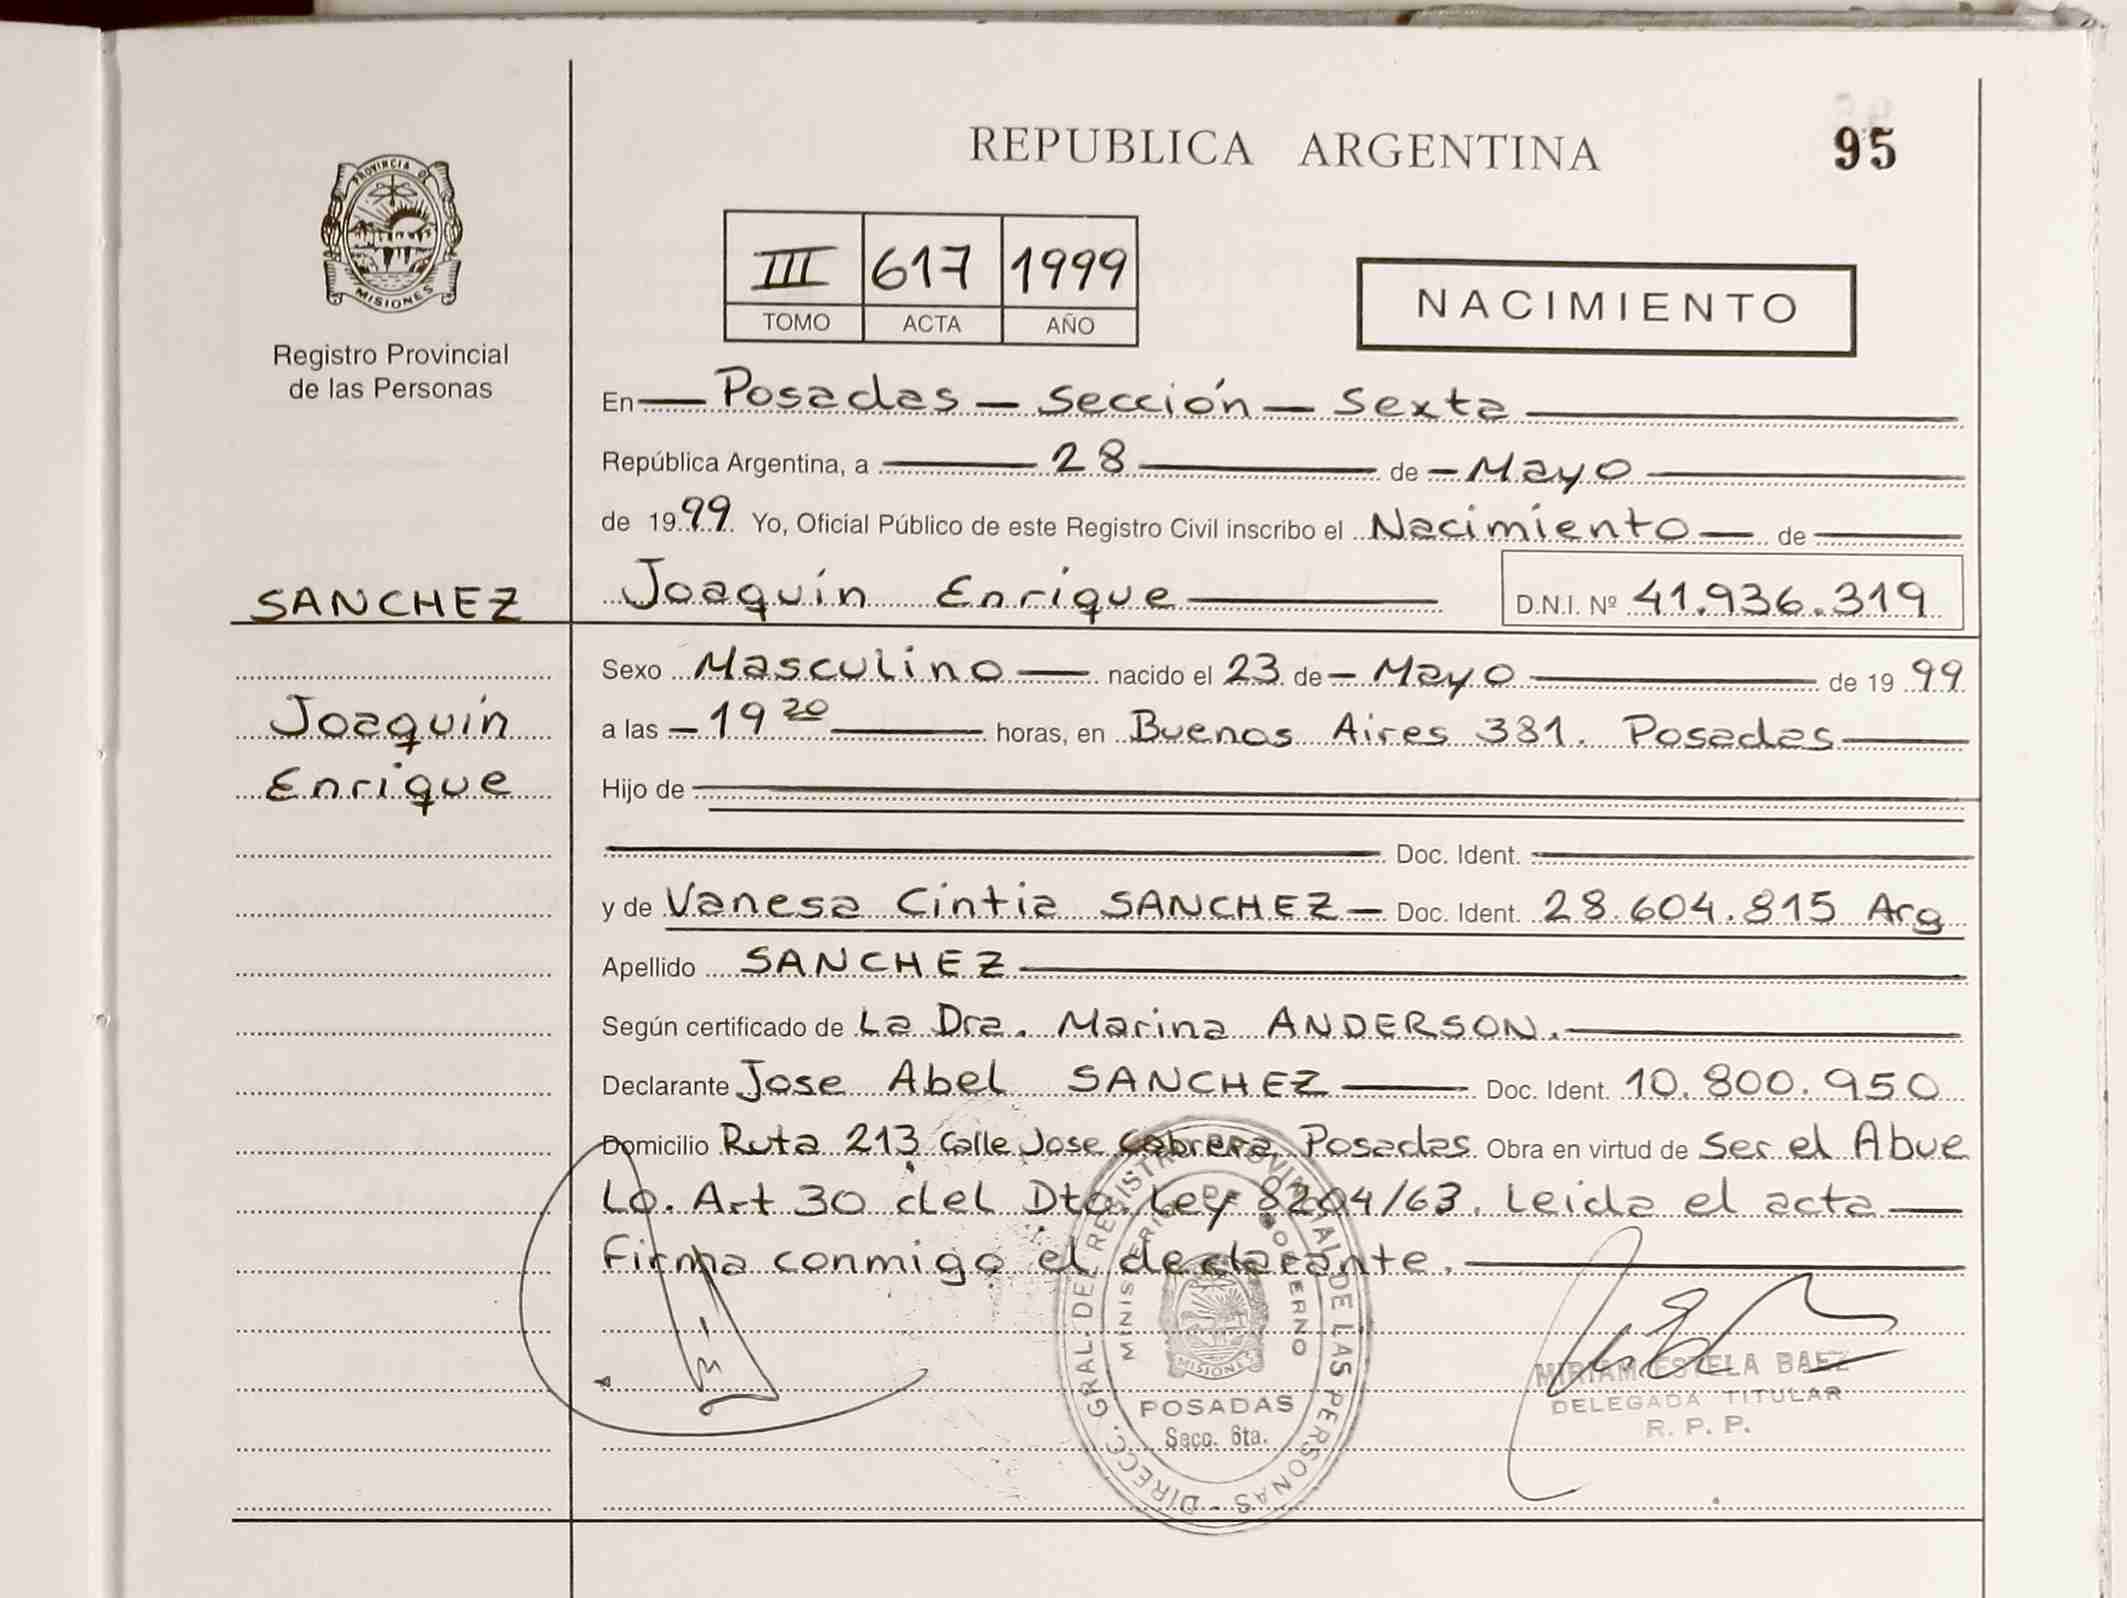 REPUBLICA ARGENTINA
95
PROVINCIA DE
MISIONES
Registro Provincial
de las Personas
III 617 1999
TOMO ACTA AÑO
NACIMIENTO
En Posadas - Sección - Sexta
República Argentina, a 28 de Mayo
de 1999 Yo, Oficial Público de este Registro Civil inscribo el Nacimiento de
SANCHEZ
Joaquín Enrique D.N.I. Nº 41.936.319
Sexo Masculino nacido el 23 de Mayo de 1999
Joaquín
a las 19 20 horas, en Buenos Aires 381. Posadas
Enrique
Hijo de
Doc. Ident.
y de Vanesa Cintia SANCHEZ Doc. Ident. 28.604.815 Arg
Apellido SANCHEZ
Según certificado de La Dra. Marina ANDERSON.
Declarante Jose Abel SANCHEZ Doc. Ident. 10.800.950
Domicilio Ruta 213 Calle Jose Cabrera, Posadas Obra en virtud de Ser el Abue
Lo. Art 30 del Dto. Ley 8204/63. Leida el acta
Firma conmigo el declarante.
DIRECC. GRAL. DEL REGISTRO PROVINCIAL DE LAS PERSONAS
MINISTERIO DE GOBIERNO
MISIONES
POSADAS
Secc. 6ta.
MIRIAM ESTELA BAEZ
DELEGADA TITULAR
R. P. P.